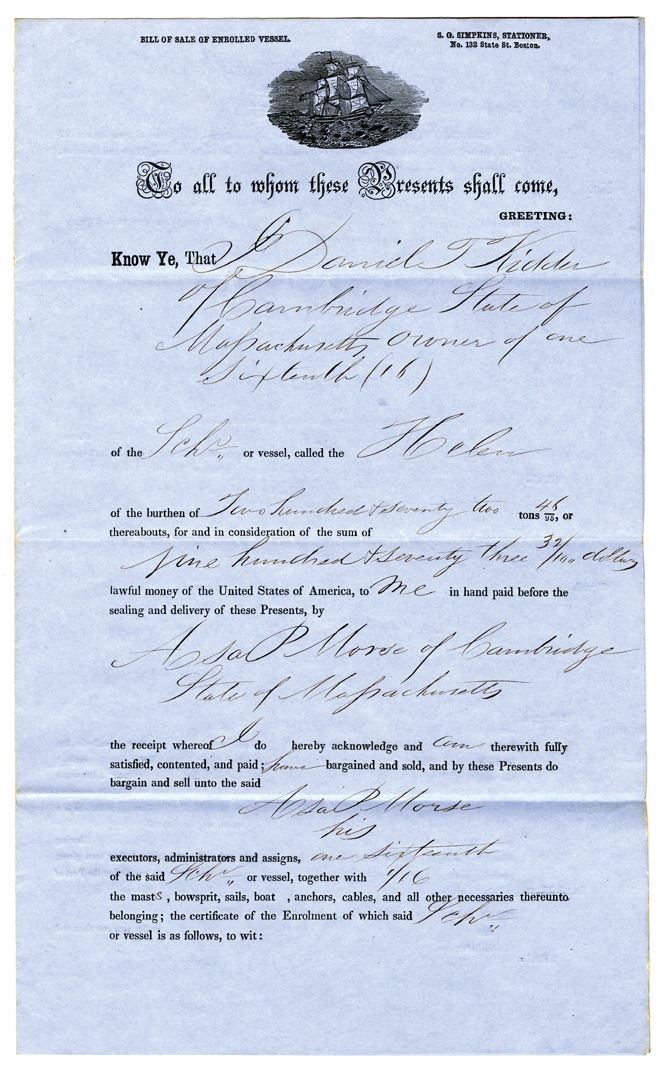 BILL OF SALE OF ENROLLED VESSEL.
S. G. SIMPKINS, STATIONER,
No. 132 State St. Boston.
To all to whom these Presents shall come,
GREETING:
Know Ye, That I Daniel T Kidder
of Cambridge State of
Massachusetts owner of one
Sixtenth (16)
of the Schr. or vessel, called the Helen
of the burthen of Two hundred & seventy two tons 46/95, or
thereabouts, for and in consideration of the sum of
five hundred & seventy three 32/100 dollars
lawful money of the United States of America, to me in hand paid before the
sealing and delivery of these Presents, by
Asa P Morse of Cambridge
State of Massachusetts
the receipt whereof I do hereby acknowledge and am therewith fully
satisfied, contented, and paid; have bargained and sold, and by these Presents do
bargain and sell unto the said
Asa P Morse
his
executors, administrators and assigns, one sixteenth
of the said Schr. or vessel, together with 1/16
the masts, bowsprit, sails, boat , anchors, cables, and all other necessaries thereunto
belonging; the certificate of the Enrolment of which said Schr.
or vessel is as follows, to wit: